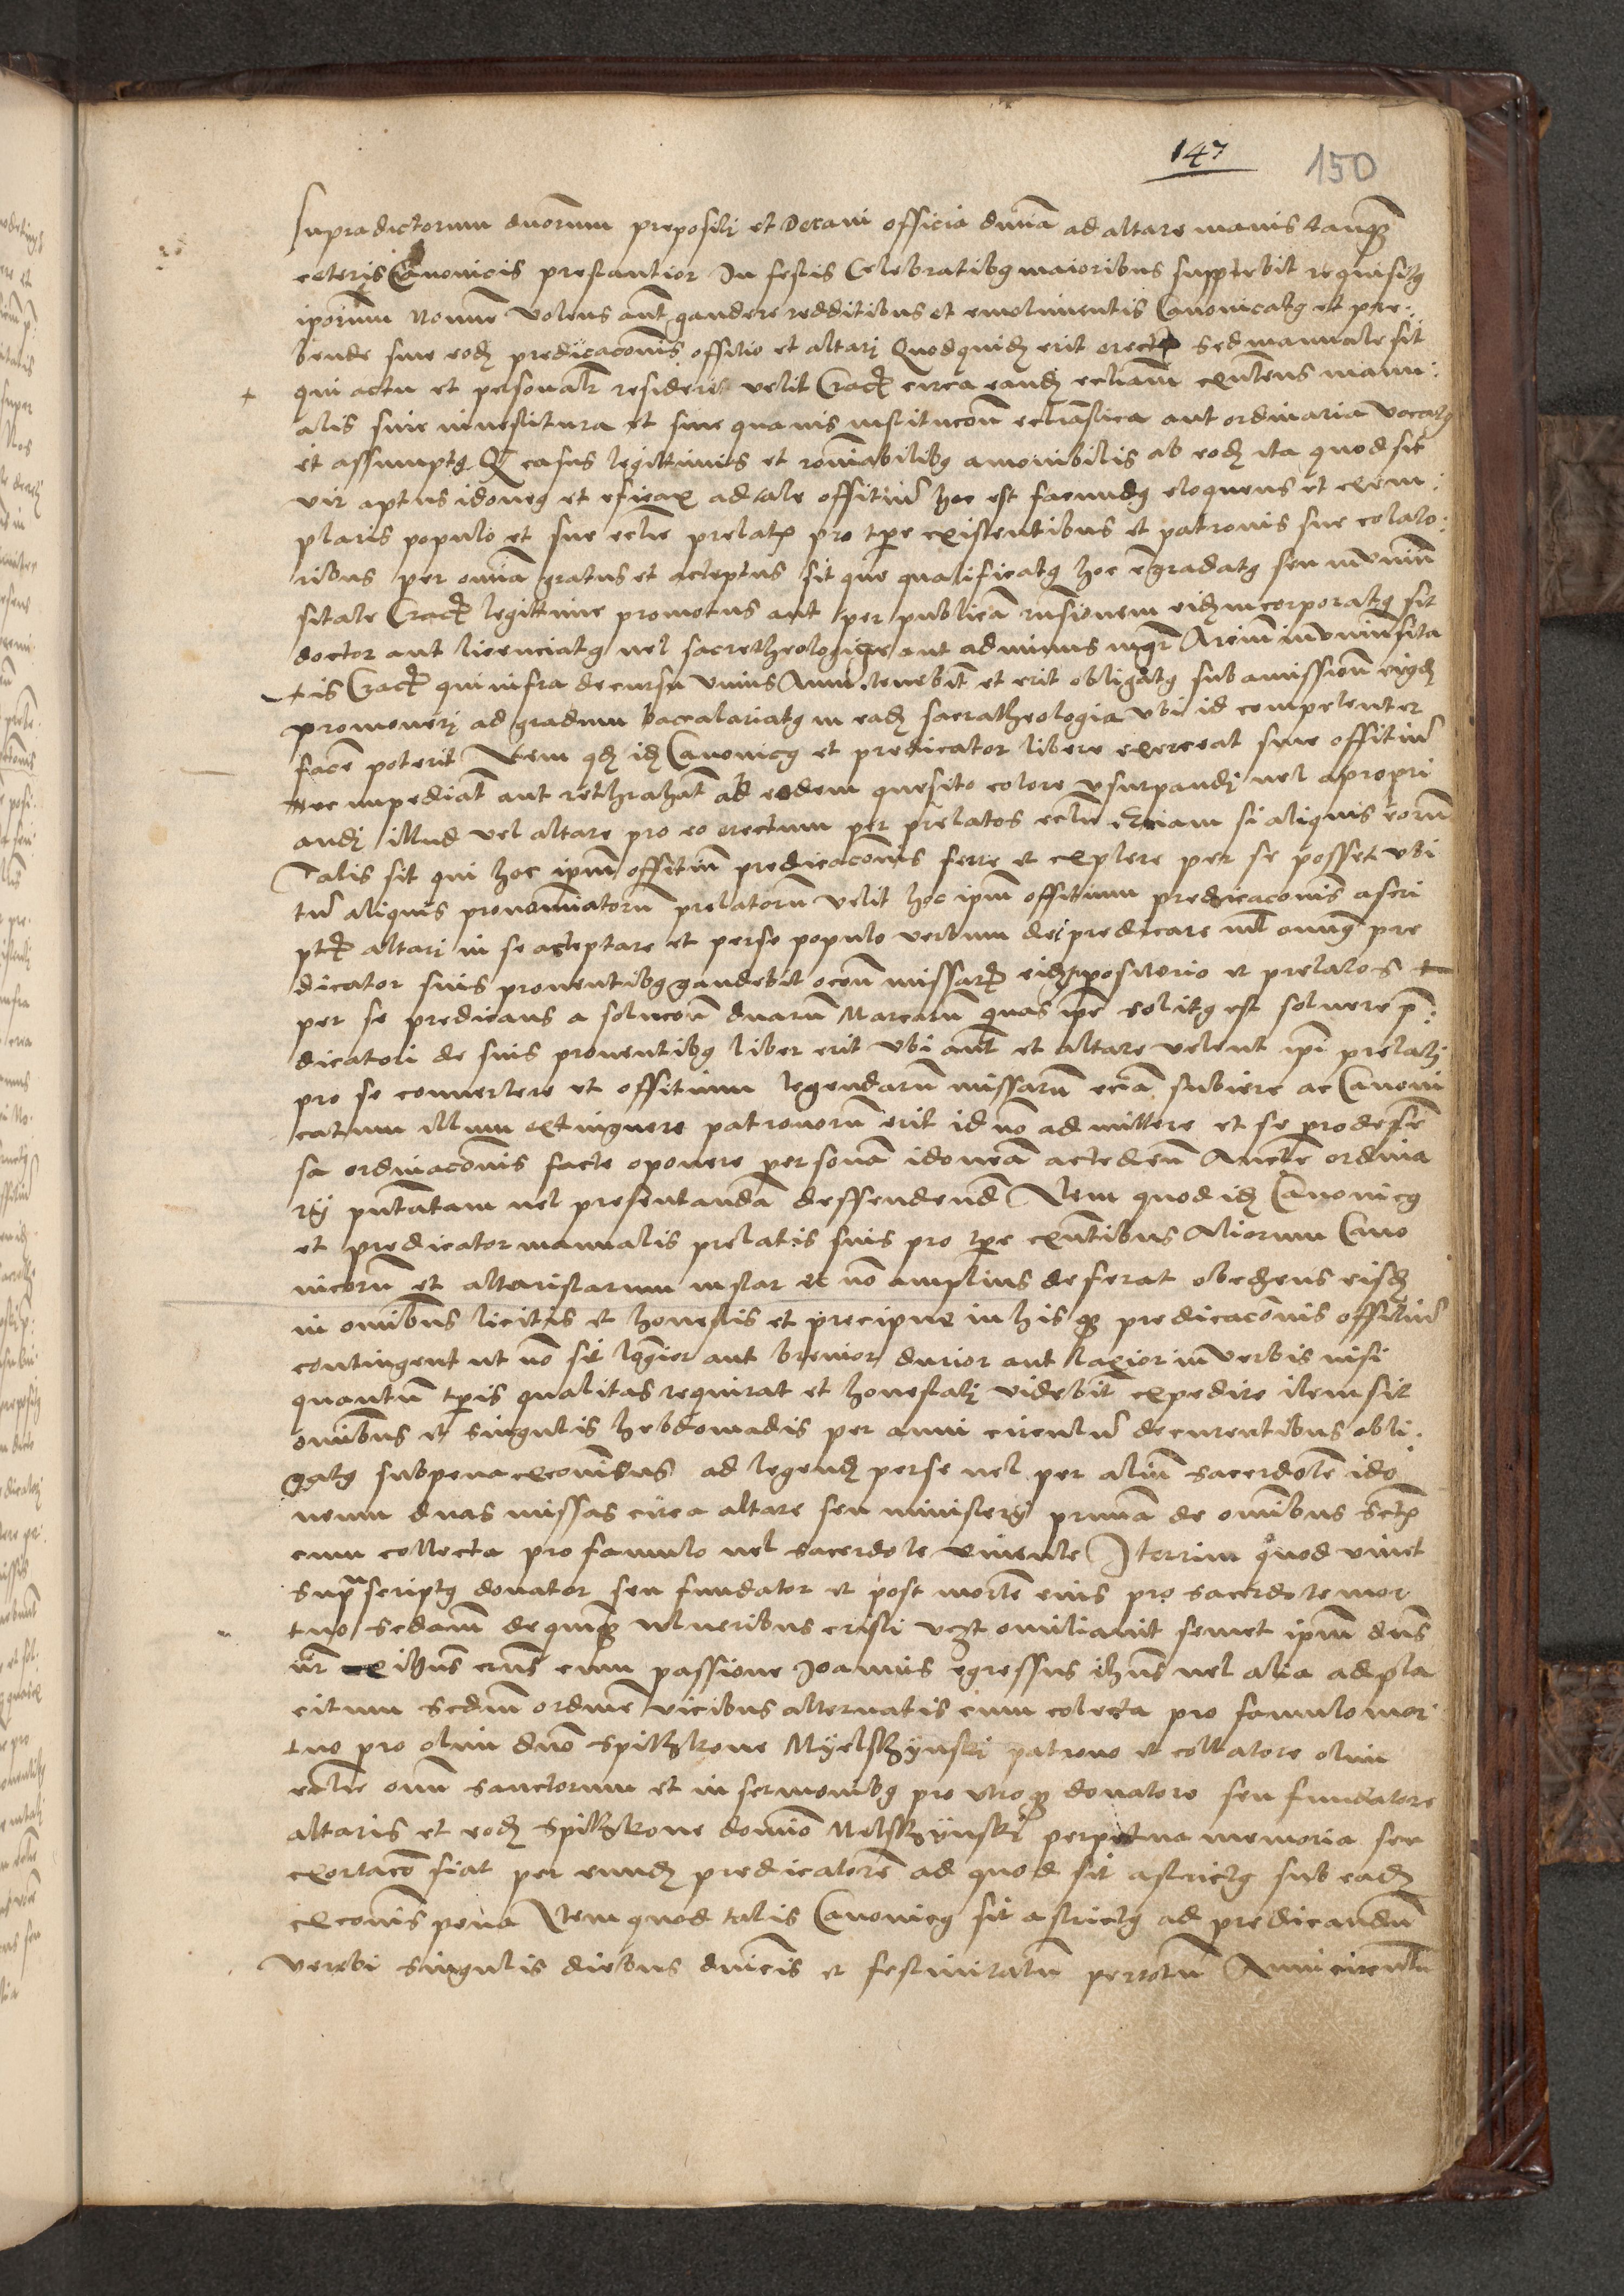 147 150
Supradictorum duorum prepositi et Decani officia diuina ad altare maius tanquam
ceteris Canonicis prestantior In festis Celebratibus maioribus supplebit requisitus
ipsorum nomine volens autem gaudere redditibus et emolimentis Canonicatus et pre-
bende siue eodem predicacionis offitio et altari Quodquidem erit sed manuale sit
qui actu et personaliter residere velit circa eandem ecclesiam existens manu
alis siue inuestitura et sine quauis institucione ecclesiastica aut ordinaria vocatus
et assumptus casus legittimis et amouibilis ab eodem ita quod sit
vir aptus idoneus et eficax ad tale offitium hoc est facundus eloquens et exem
plaris populo et sue ecclesie prelatis pro tempore existentibus et patronis siue colato
ribus per omnia gratus et acceptus sit que qualificatus hoc est gradatus seu in vniuer
sitate legittime promotus aut per publicam eidem incorporatus sit
doctor aut licenciatus vel sacre theologie aut ad minus magister Arcium in vniuersita
tis qui infra decursu vnius Anni tenebitur et erit obligatus sub amissione eiusdem
promoueri ad gradum baccalariatus in eadem sacra theologia vbi id competenter
facere poterit Item quod idem Canonicus et predicator libere exerceat suum offitium
nec impediatur aut rethrahatur ab eodem quesito colore vsurpandi vel apropri
andi illud vel altare pro eo erectum per prelatos ecclesie Eciam si aliquis eorum
Talis sit qui hoc ipsum offitium predicacionis ferre et explere per se posset vbi
tum aliquis pronominatorum prelatorum velit hoc ipsum offitium predicacionis ascri
altari in se acceptare et per se populo verbum dei predicare pre
dicator suis prouentibus gaudebit missarum eidem et prelatos
per se predicans a solucione duarum Marcarum quas ipse solitus est soluere pre
dicatori de suis prouentibus liber erit vbi autem et altare velent ipsi prelati
pro se conuertere et offitium legendarum missarum eciam subiere ac Canoni
catum illum extinguere patronorum erit id non admittere et se pro defen
sa ordinacionis facte oponere personam idoneam ordina
rii presentatam vel presentandam deffendendo Item quod idem Canonicus
et predicator manualis prelatis suis pro tempore existentibus Aliorum Cano
nicorum et altaristarum instar et non amplius deferat obediens eisdem
in omnibus licitis et honestis et precipue in his que predicacionis offitium
contingent ut non sit longior aut breuior durior aut laxior in verbis nisi
quantum temporis qualitas requirat et honestati videbitur expedire item sit
omnibus et singulis hebdomadis per anni circulum decurentibus obli
gatus sub pena excommunicacionis ad legendum per se vel per alium sacerdotem ido
neum duas missas circa altare seu ministerii primam de omnibus sanctis
cum collecta pro famulo vel sacerdote viuente Iterrim quod viuet
suprascriptus donator seu fundator et post mortem eius pro sacerdote mor
tuo secundam de quinque vulneribus cristi videlicet omiliauit semet ipsum dominus
noster ihesus cristus cum passione Joannis egressus ihesus vel alia ad pla
citum secundum ordinem vicibus alternatis cum colecta pro famulo mor
tuo pro olim domino Spithkone Myelsthynski patrono et collatore olim
ecclesie omnium sanctorum et in sermonibus pro vtroque donatore seu fundatore
altaris et eodem Spithkone domino Melsthynski perpetua memoria seu
exortacio fiat per eundem predicatorem ad quod sit astrictus sub eadem
excommunicacionis pena Item quod talis Canonicus sit astrictus ad predicandum
verbi singulis diebus dominicis et festiuitatum per totum Anni circulum